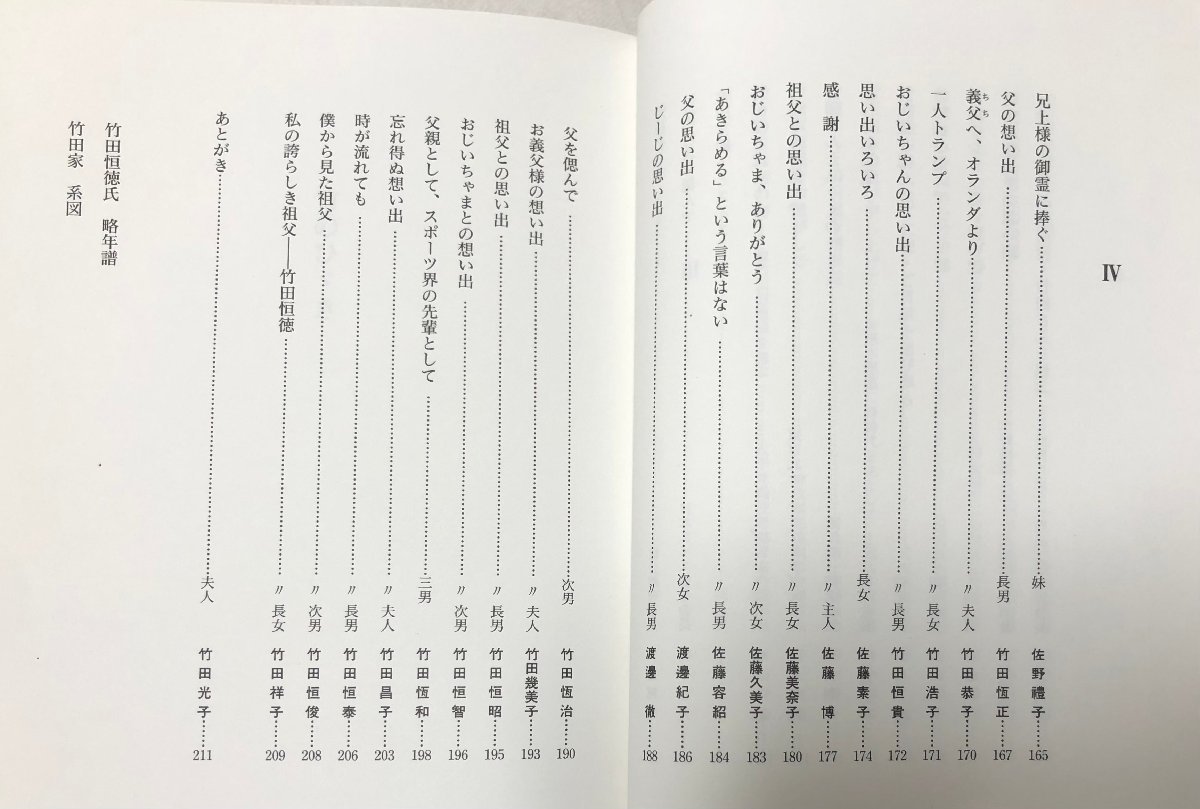 Ⅳ
兄上様の御霊に捧ぐ……妹 佐野禮子……165
父の想い出……長男 竹田恆正……167
義父へ、オランダより……〃夫人 竹田恭子……170
ちち
一人トランプ……〃長女 竹田浩子……171
おじいちゃんの思い出……〃長男 竹田恒貴……172
思い出いろいろ……長女 佐藤素子……174
感謝……〃主人 佐藤博……177
祖父との思い出……〃長女 佐藤美奈子……180
おじいちゃま、ありがとう……〃次女 佐藤久美子……183
「あきらめる」という言葉はない……〃長男 佐藤容紹……184
父の思い出……次女 渡邊紀子……186
じーじの思い出……〃長男 渡邊徹……188
父を偲んで……次男 竹田恆治……190
お義父様の想い出……〃夫人 竹田幾美子……193
祖父との思い出……〃長男 竹田恒昭……195
おじいちゃまとの想い出……〃次男 竹田恒智……196
父親として、スポーツ界の先輩として……三男 竹田恆和……198
忘れ得ぬ想い出……〃夫人 竹田昌子……203
時が流れても……〃長男 竹田恒泰……206
僕から見た祖父……〃次男 竹田恒俊……208
私の誇らしき祖父――竹田恒徳……〃長女 竹田祥子……209
あとがき……夫人 竹田光子……211
竹田恒徳氏 略年譜
竹田家 系図